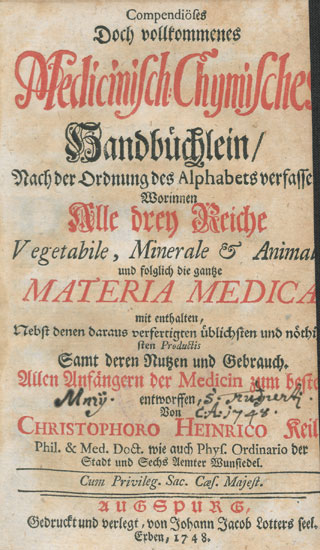 Compendiöses
Doch vollkommenes
Medicinisch-Chymisches
Handbüchlein/
Nach der Ordnung des Alphabets verfasse
Worinnen
Alle drey Reiche
Vegetabile, Minerale & Animal
und folglich die gantze
MATERIA MEDICA
mit enthalten,
Nebst denen daraus verfertigten üblichsten und nöthi
sten Productis
Samt deren Nutzen und Gebrauch.
Allen Anfängern der Medicin zum beste
entworffen,
Von
C.A. 1748.
CHRISTOPHORO HEINRICO Keil
Phil. & Med. Doct. wie auch Phys. Ordinario der
Stadt und Sechs Aemter Wunsiedel.
Cum Privileg. Sac. Cæs. Majest.
AUGSPURG,
Gedruckt und verlegt, von Johann Jacob Lotters seel.
Erben, 1748.